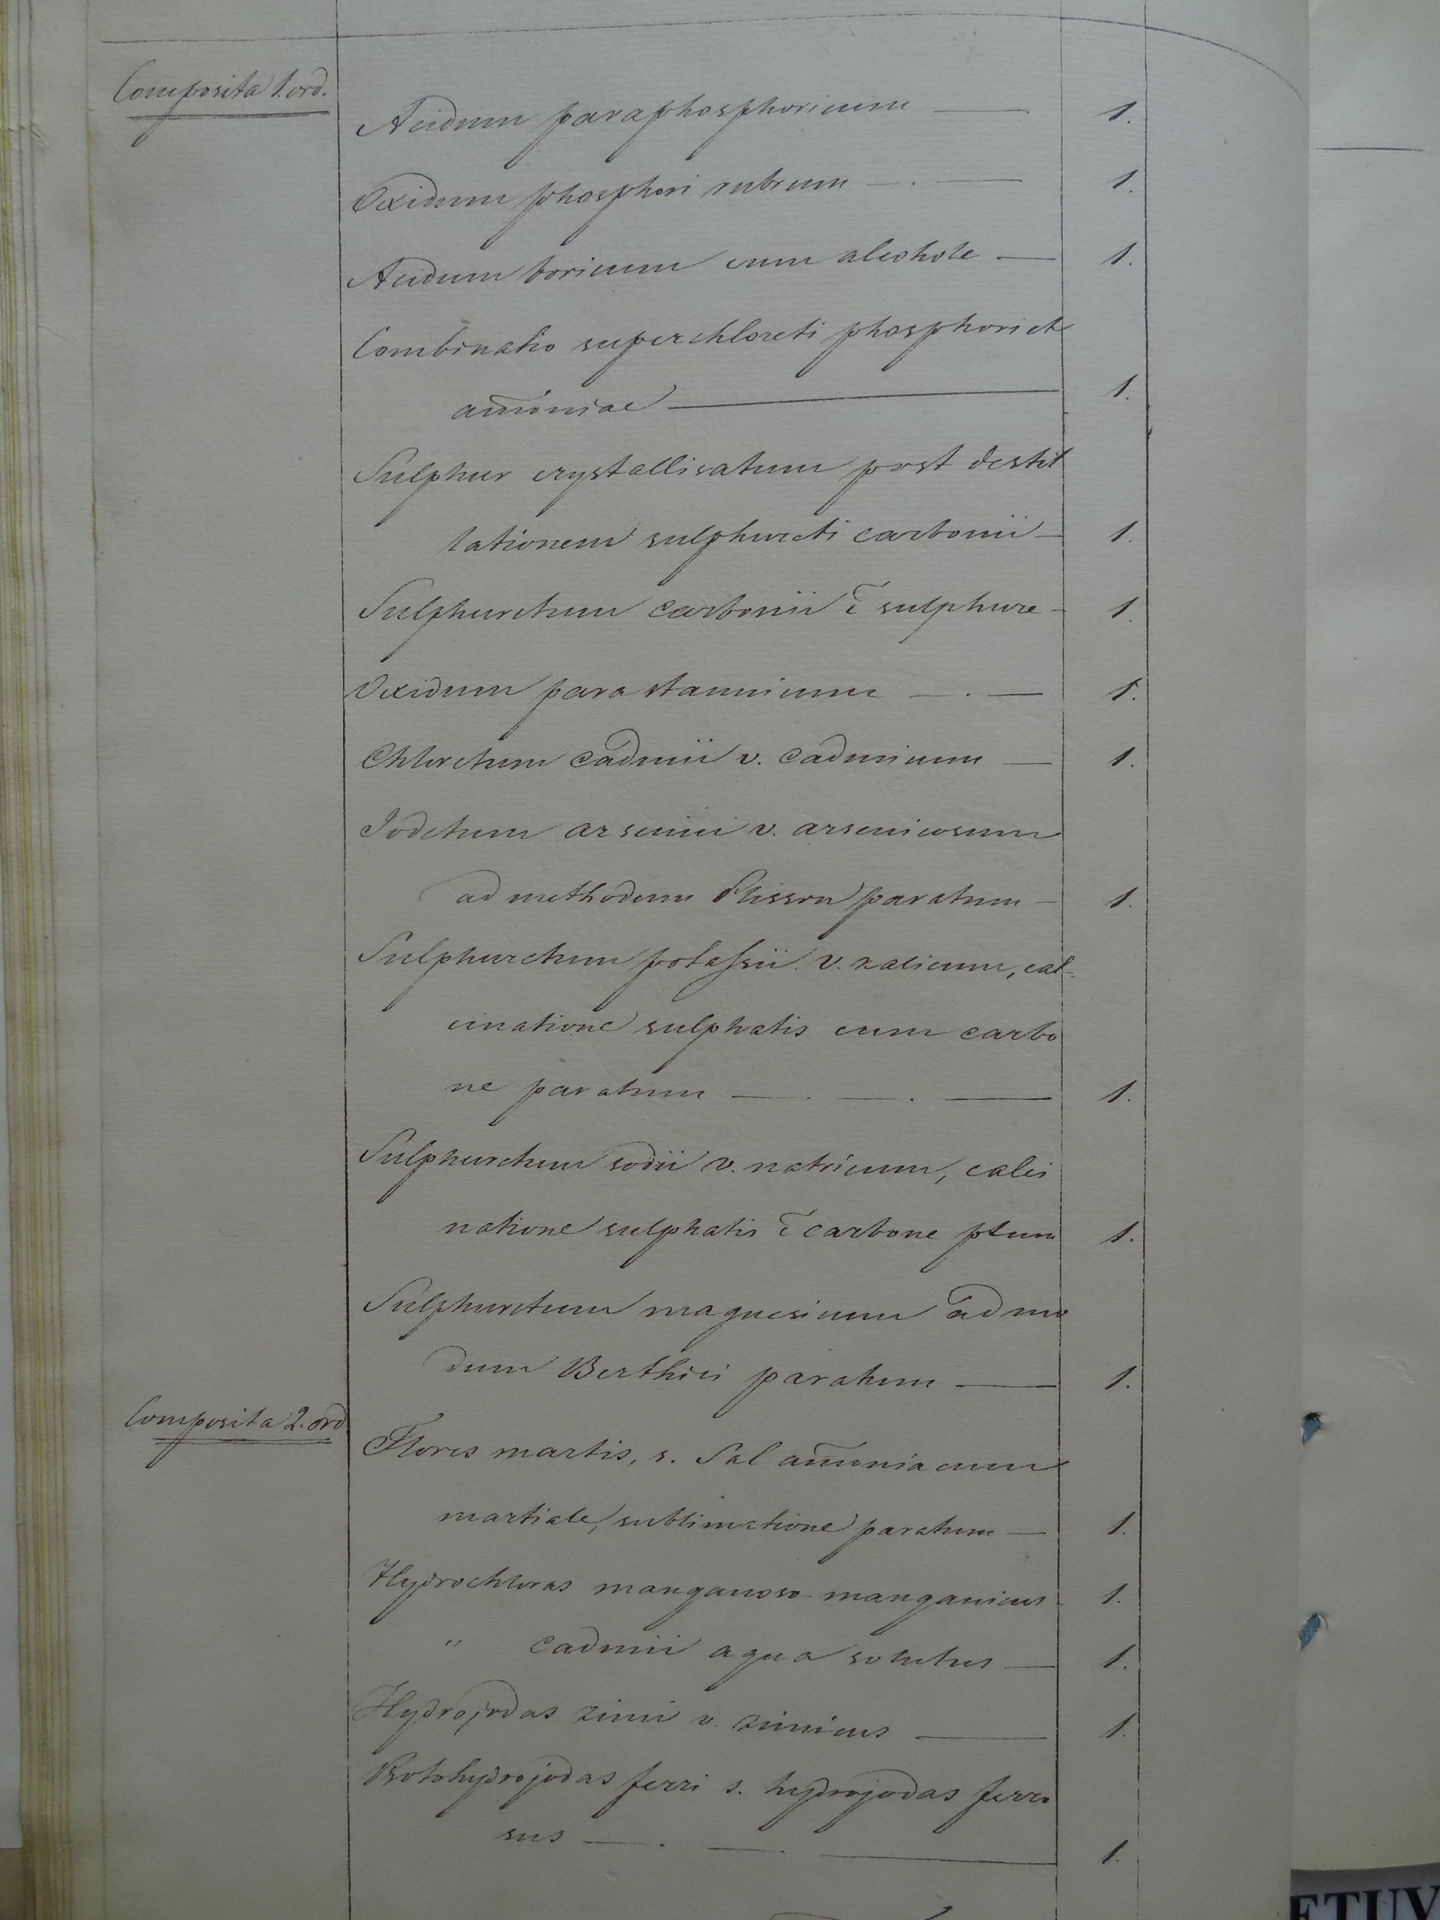 Composita 1. ord.
Acidum paraphosphoricum — 1.
Oxidum phosphori rubrum — . — 1.
Acidum boricum cum alcohole — 1.
Combinatio superchloreti phosphori et
am̄oniae — 1.
Sulphur crystallisatum post destil
lationem sulphureti carbonii — 1.
Sulphuretum carbonii c̄ sulphure - 1.
Oxidum parastannicum — . — 1.
Chloretum cadmii v. cadmicum — 1.
Jodetum arsenici v. arsenicosum
ad methodum Plisson paratum — 1.
Sulphuretum potassii v. kalicum, cal-
cinatione sulphatis cum carbo
ne paratum — . — . — 1.
Sulphuretum sodii v. natricum, calci
natione sulphatis c̄ carbone ptum 1.
Sulphuretum magnesicum ad mo
dum Berthieri paratum — 1.
Composita 2. ord
Flores martis, s. Sal am̄oniacum
martiale, sublimatione paratum — 1.
Hydrochloras manganoso-manganicus - 1.
" cadmii aqua solutus — 1.
Hydrojodas zinci v. zincicus — 1.
Protohydrojodas ferri s. hydrojodas ferro
sus — . — . — 1.
ETUV